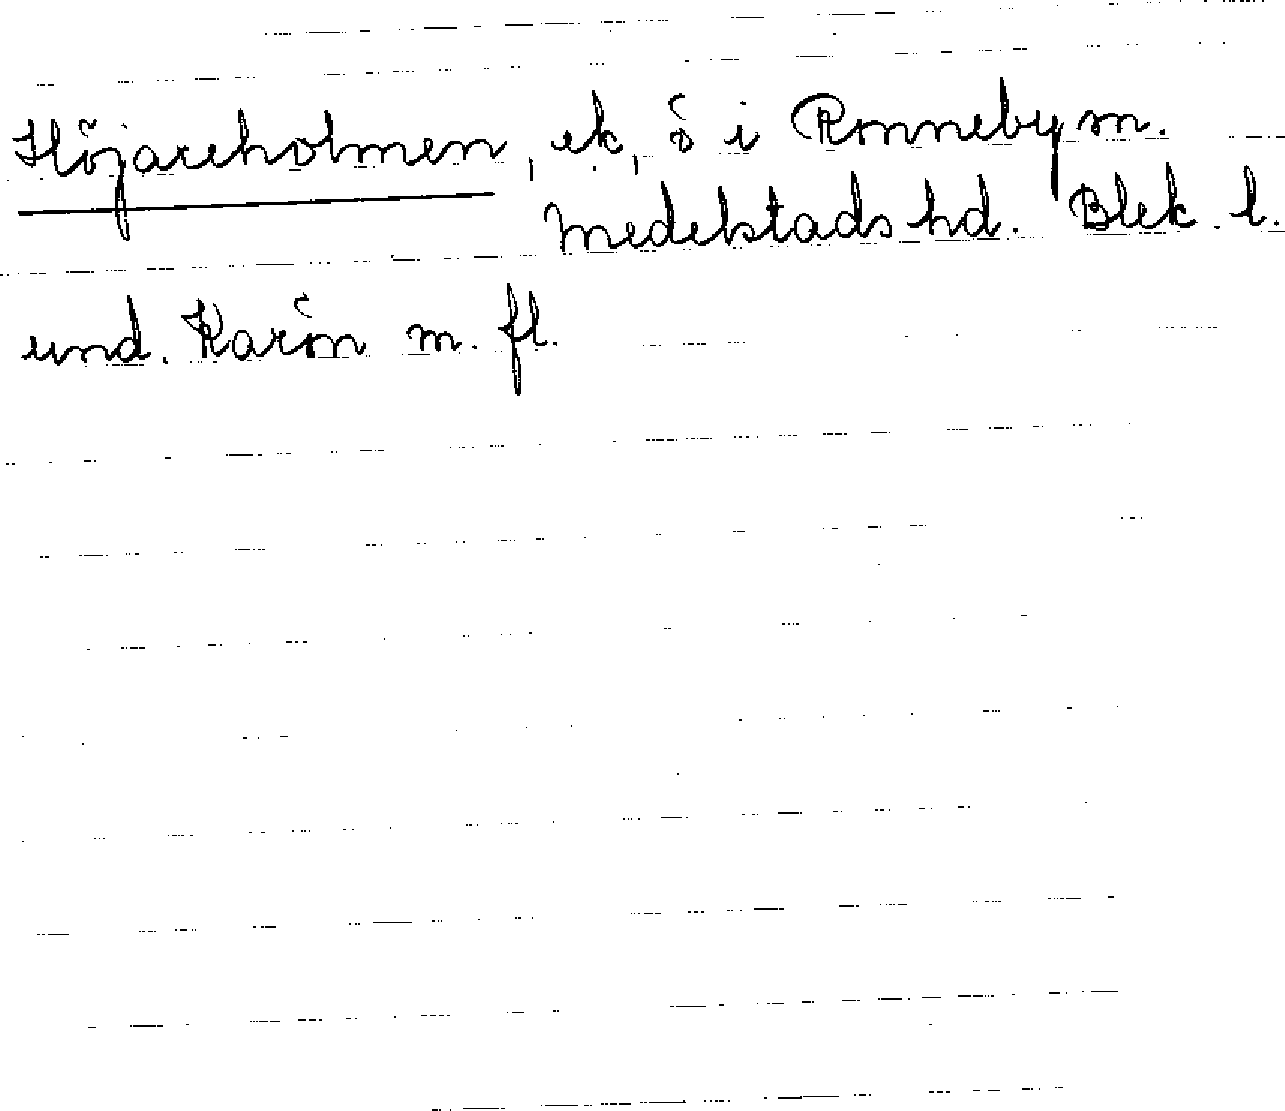 Höjareholmen, ek, ö i Ronneby sn.
Medelstads hd. Blek. l.
und. Karön m. fl.